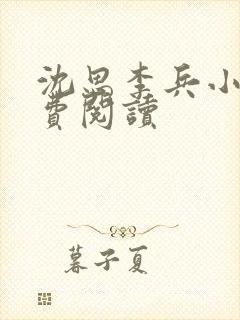 沈思李兵小
費閱讀
暮子夏